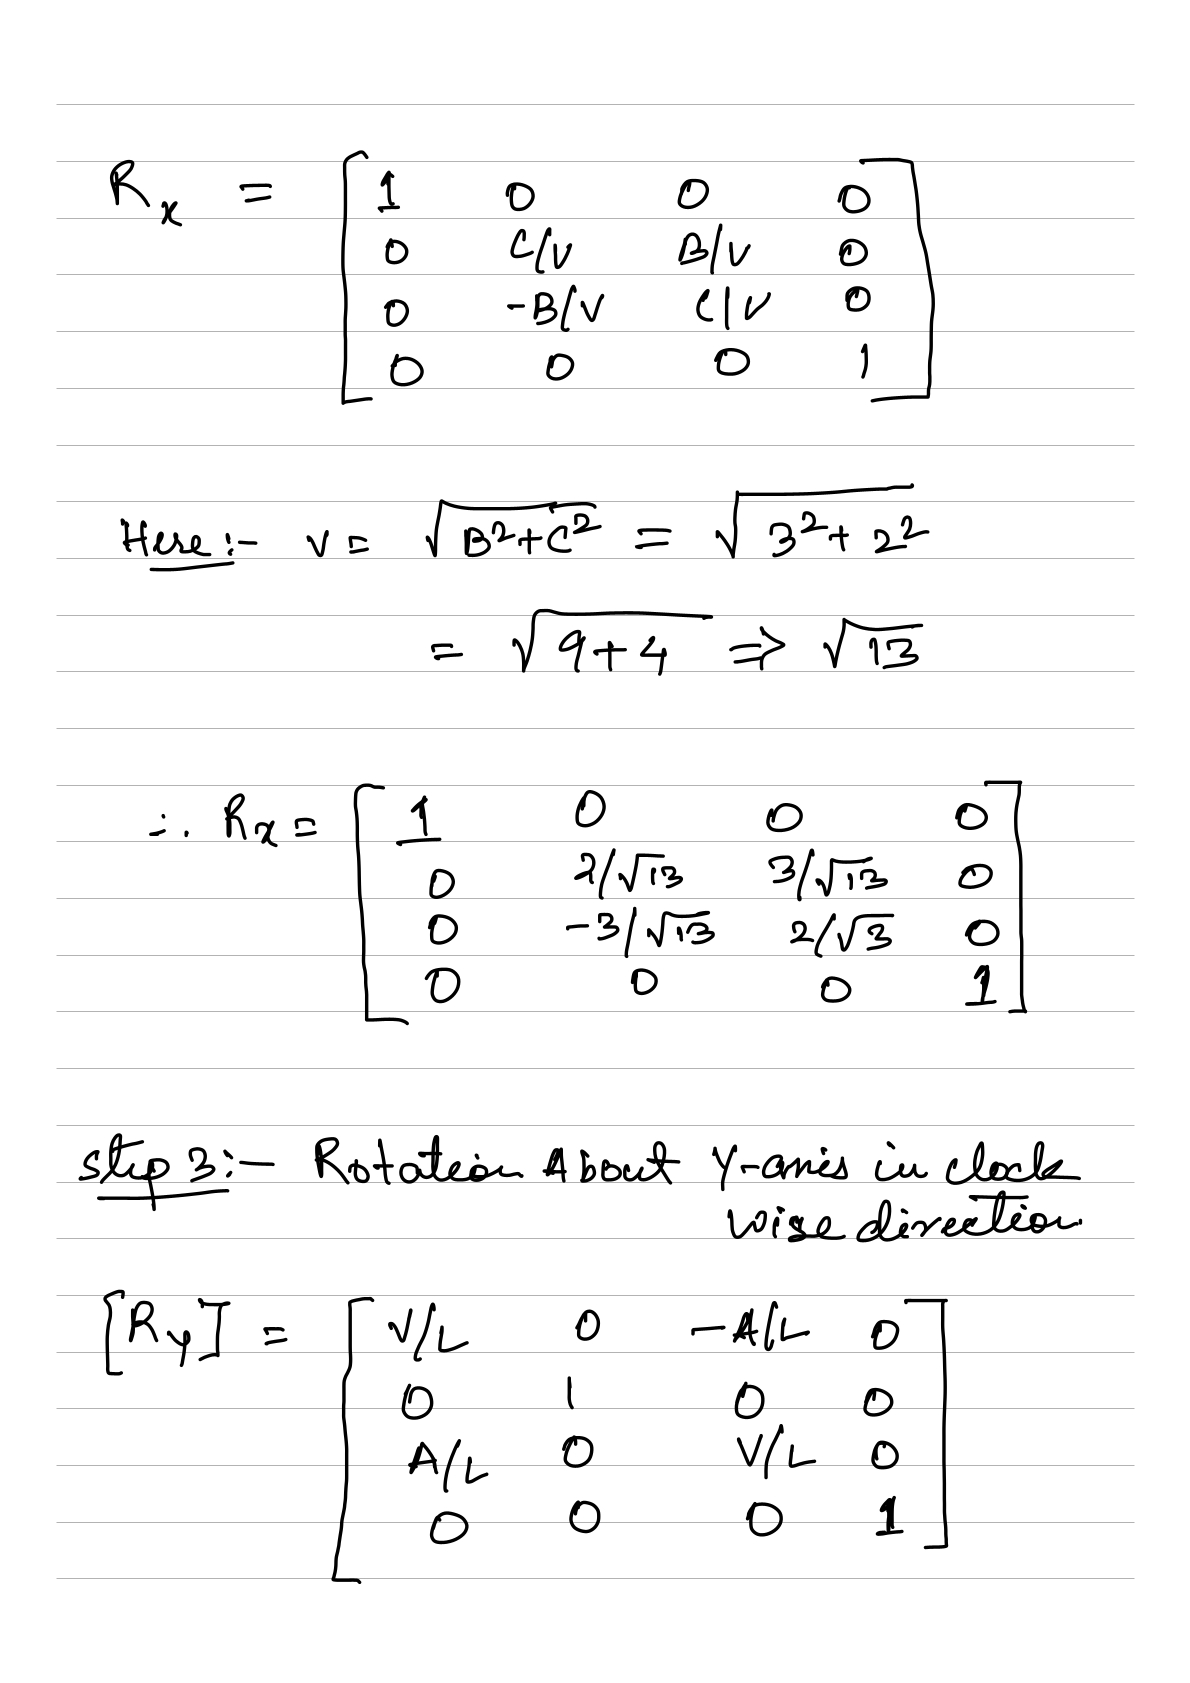 Rx = [ 1 0 0 0
0 C/V B/V 0
0 -B/V C/V 0
0 0 0 1 ]
Here :- V = √B²+C² = √3²+2²
= √9+4 ⇒ √13
∴ Rx = [ 1 0 0 0
0 2/√13 3/√13 0
0 -3/√13 2/√3 0
0 0 0 1 ]
Step 3:- Rotation About Y-axis in clock
wise direction
[Ry] = [ V/L 0 -A/L 0
0 1 0 0
A/L 0 V/L 0
0 0 0 1 ]